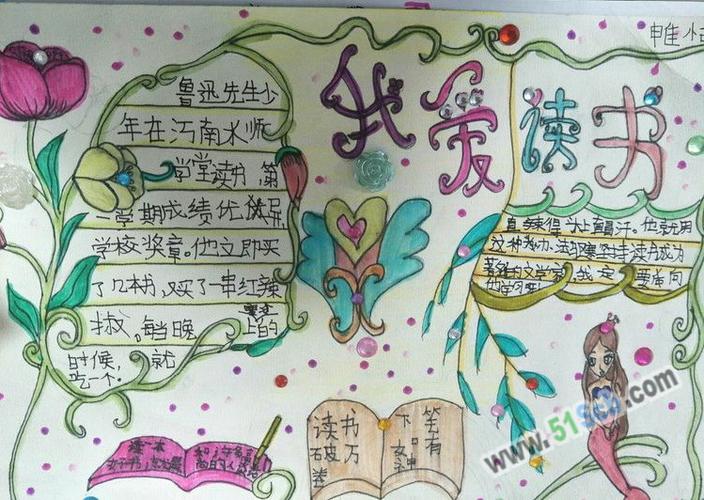 我爱读书
鲁迅先生少
年在江南水师
学堂读书,第
一学期成绩优
学校奖章。他立即买
了几本书,又买了一串红辣
椒,每当晚
上的
时候,就
吃一个。
直辣得头上直冒汗。他就用
这种办法 坚持读书成为
著名的文学家,我一定要
他学习
读一本
好书,
和许多
高尚的人
读书
破万
卷
下笔
有
神
www.51scb.com